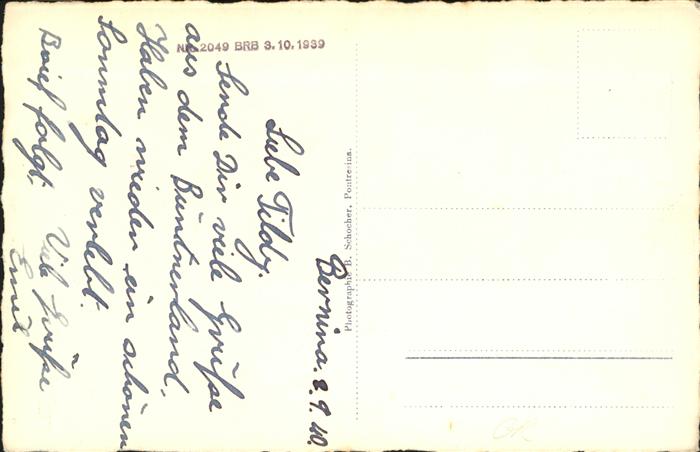 Bernina. 2.9.40.
Liebe Tildy.
Sende Dir viele Grüße
aus dem Bündnerland.
Haben wieder ein schönen
Sonntag verlebt.
Brief folgt. Viele Grüße
Emil
Nr. 2049 BRB 3.10.1939
Photographie B. Schocher, Pontresina.
GR